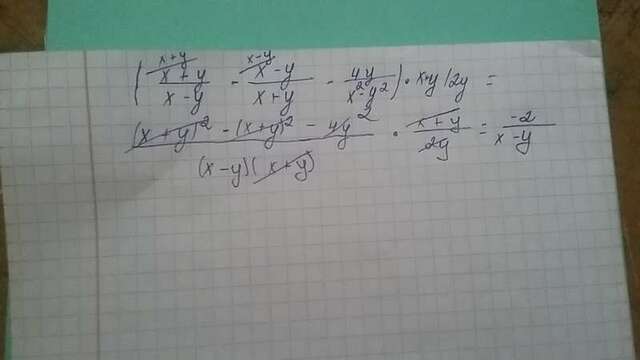 ( x+y/x-y - x-y/x+y - 4y²/x²-y² ) · x+y/2y =
(x+y)² - (x+y)² - 4y² / (x-y)(x+y) · x+y/2y = -2/x-y